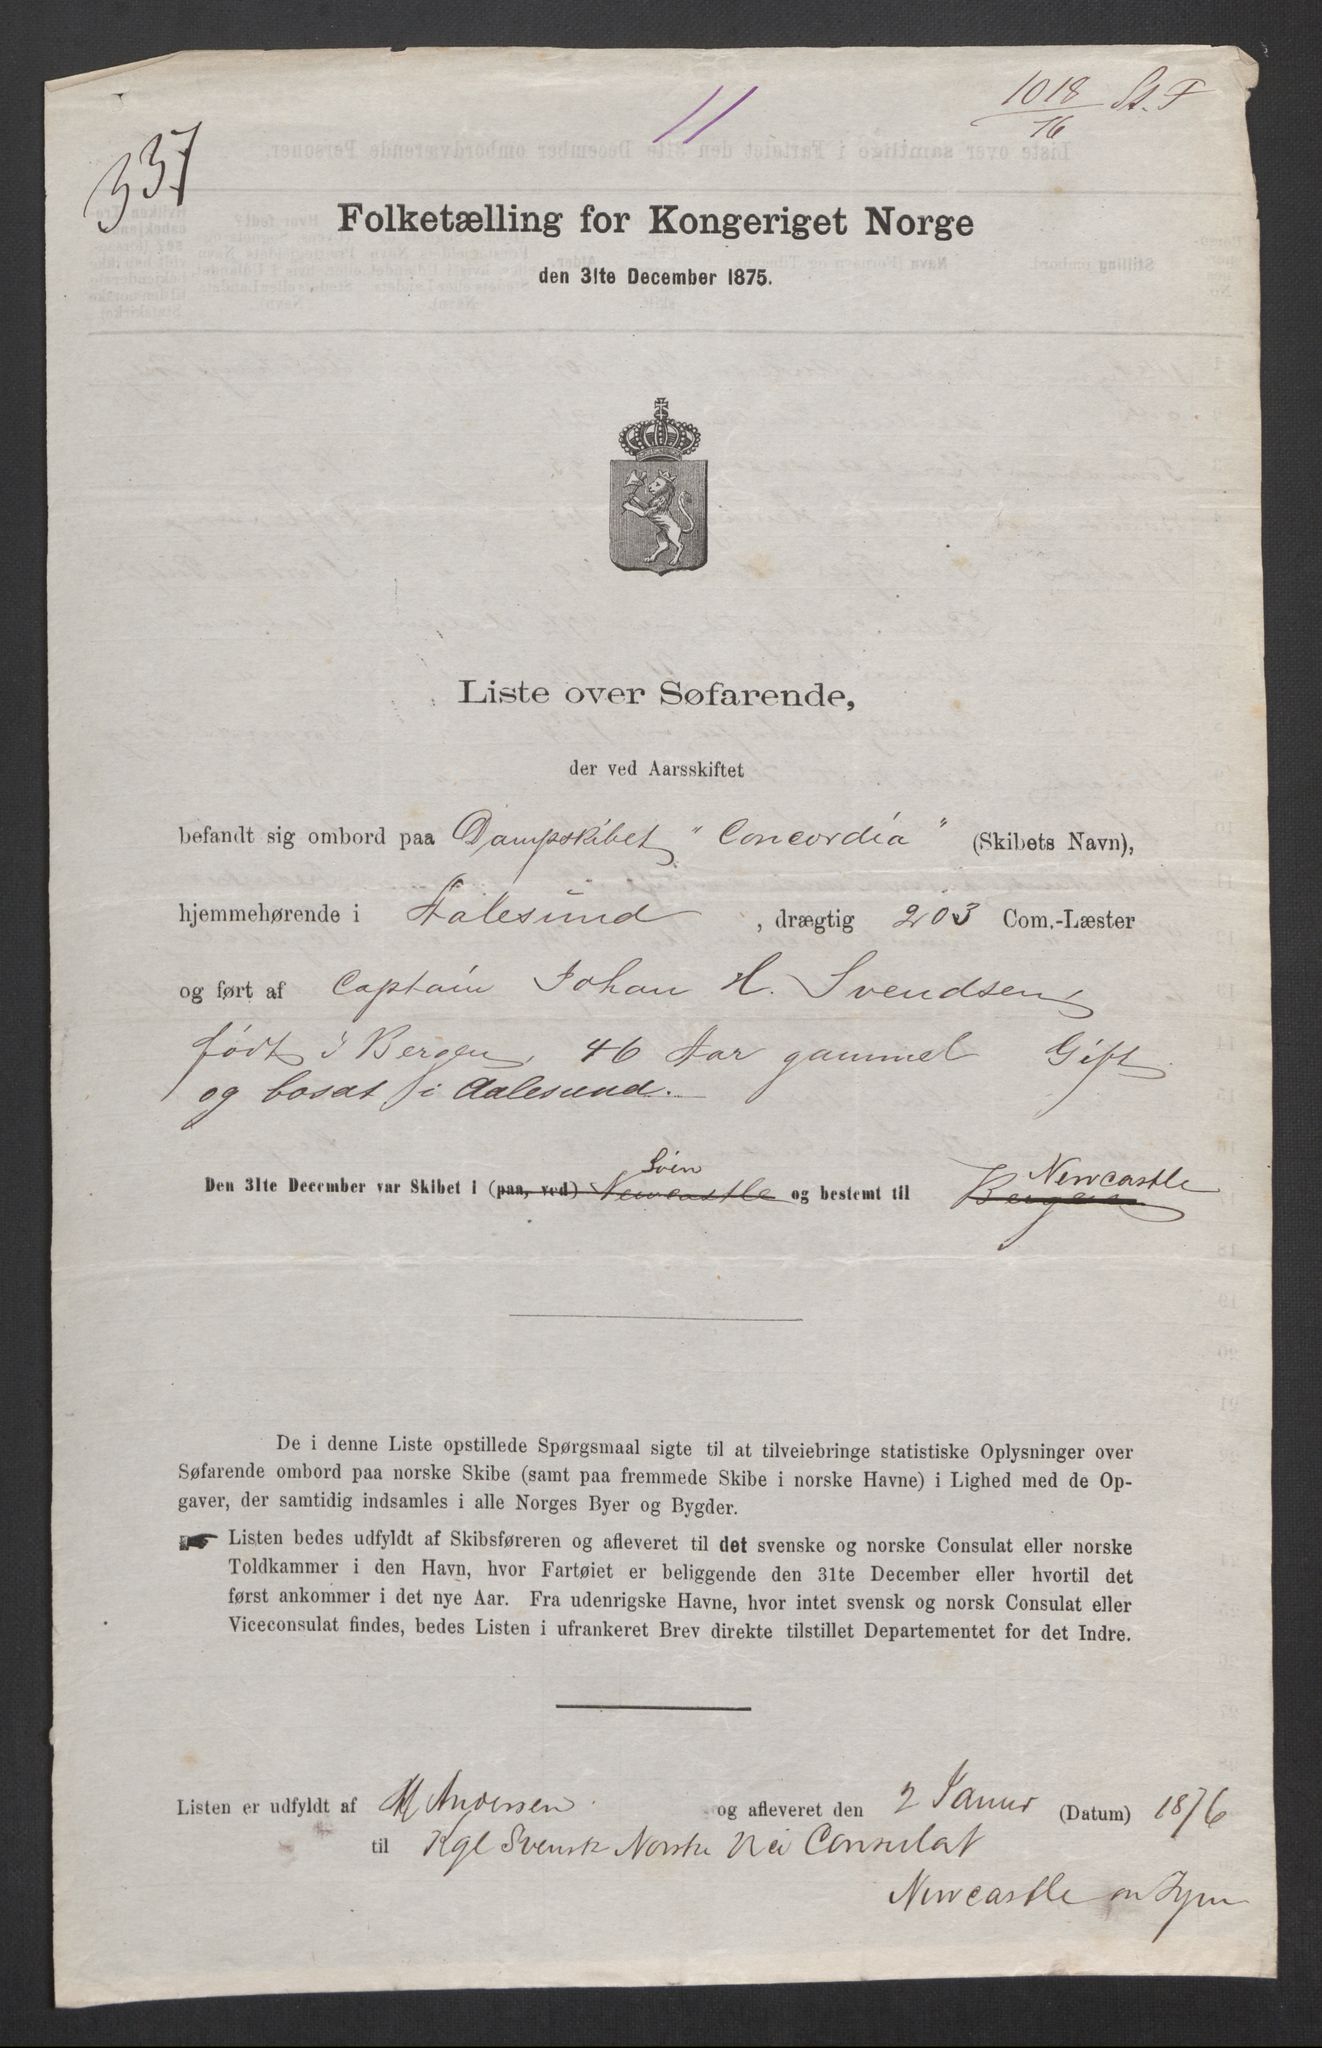 337
11
1018/76 St. F
Folketælling for Kongeriget Norge
den 31te December 1875.
Liste over Søfarende,
der ved Aarsskiftet
befandt sig ombord paa Dampskibet "Concordia" (Skibets Navn),
hjemmehørende i Aalesund, drægtig 203 Com.-Læster
og ført af Captain Johan H. Svendsen
født i Bergen, 46 Aar gammel Gift
og bosat i Aalesund.
Søen Newcastle
Den 31te December var Skibet i (paa, ved) Newcastle og bestemt til Bergen
De i denne Liste opstillede Spørgsmaal sigte til at tilveiebringe statistiske Oplysninger over
Søfarende ombord paa norske Skibe (samt paa fremmede Skibe i norske Havne) i Lighed med de Op-
gaver, der samtidig indsamles i alle Norges Byer og Bygder.
Listen bedes udfyldt af Skibsføreren og afleveret til det svenske og norske Consulat eller norske
Toldkammer i den Havn, hvor Fartøiet er beliggende den 31te December eller hvortil det
først ankommer i det nye Aar. Fra udenrigske Havne, hvor intet svensk og norsk Consulat eller
Viceconsulat findes, bedes Listen i ufrankeret Brev direkte tilstillet Departementet for det Indre.
Listen er udfyldt af Andersen og afleveret den 2 Januar (Datum) 1876
til Kgl Svensk Norske Vice Consulat
Newcastle on Tyne